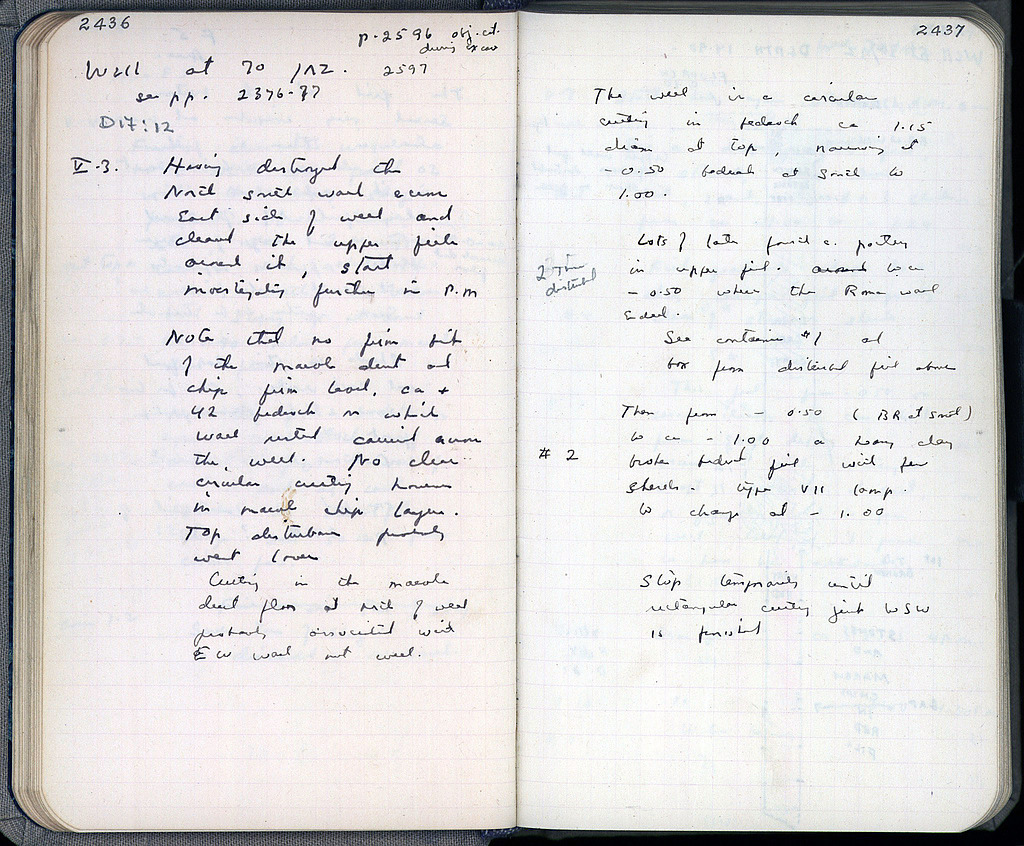 2436
p. 2596 obj. cat.
during excav
Well at 70/ΛΖ. 2597
see pp. 2376-77
D17:12
V.3. Having destroyed the
North south wall across
East side of well and
cleaned the upper fill
around it, start
investigating further in P.M
Note that no firm bit
of the marble dust and
chip firm level, ca +
42 bedrock on which
wall rested carried across
the well. No clear
circular cutting however
in marble chip layer.
Top disturbance probably
went lower
Cutting in the marble
dust floor at north of well
probably associated with
EW wall not well.
2437
The well is a circular
cutting in bedrock ca 1.15
diam at top, narrowing at
- 0.50 bedrock at South to
1.00.
Lots of late fourth c. pottery
in upper fill. around to ca
disturbed
- 0.50 where the Roman wall
Ended.
See container #1 and
box from disturbed fill above
Then from - 0.50 (BR at South)
to ca - 1.00 a heavy clay
# 2
broken bedrock fill with few
sherds. type VII lamp.
to change at - 1.00
Stop temporarily until
rectangular cutting just WSW
is finished